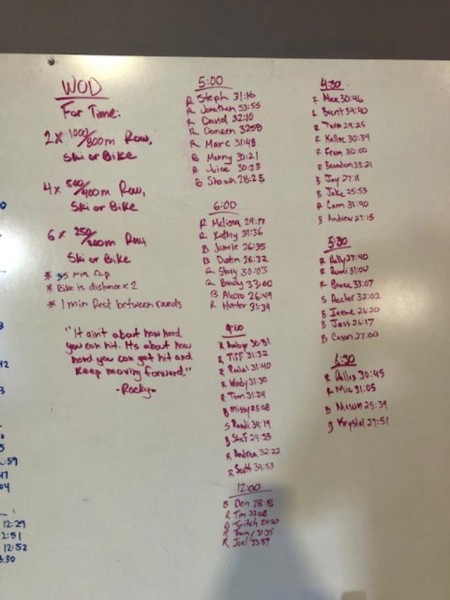 WOD
For Time:
2 x 1000/800m Row,
Ski or Bike
4 x 500/400m Row,
Ski or Bike
6 x 250/200m Row,
Ski or Bike
* 35 min cap
* Bike is distance x 2
* 1 min Rest between rounds
"It aint about how hard
you can hit. Its about how
hard you can get hit and
keep moving forward."
-Rocky-
5:00
R Steph 31:16
R Jonathan 33:55
R David 32:10
R Doreen 32:58
R Marc 31:48
B Manny 30:21
30:23
B Shawn 28:25
6:00
R Melissa 29:17
R Kathy 31:36
B Jamie 26:35
B Dustin 26:32
R Stacy 30:03
R Brady 33:00
B 26:49
R Hunter
9:00
R
R Tiff 31:32
R 31:40
R Wendy 31:30
R Tom 31:24
B Missy 25:08
S Randi 34:19
B Stef 24:33
R Andrea 32:22
R Scott 34:53
12:00
B Den
R Tim 33:08
R
R
R Joel 33:59
4:30
R 30:46
R Brent 34:40
R 29:25
R 30:39
R Fran 30:00
R Brandon 33:21
B Jay 27:11
B Jake 25:53
R Cam 31:40
B Andrew 27:15
5:30
R 27:40
R 31:00
R Bruce 33:07
S 32:02
B Irene 26:20
B Jess 26:17
B Cason 27:00
6:30
R Dallas 30:45
R 31:05
B 25:39
B Krystal 27:51
:59
47
:04
12:29
2:51
12:52
3:30